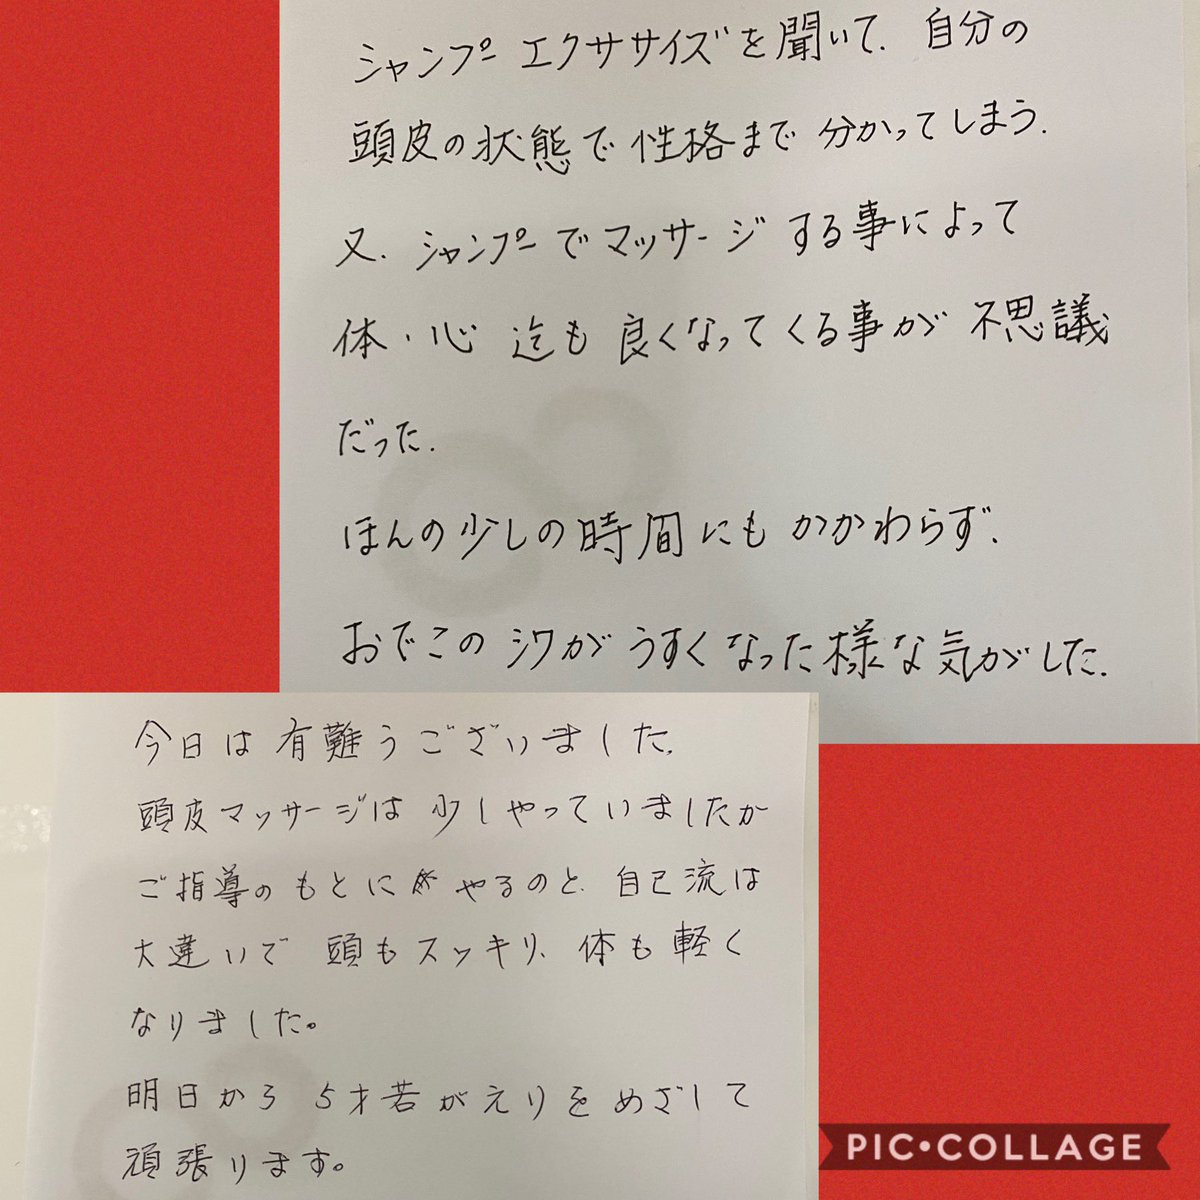 シャンプー エクササイズを聞いて、自分の
頭皮の状態で性格まで分かってしまう.
又、シャンプーでマッサージする事によって
体・心 迄も良くなってくる事が不思議
だった.
ほんの少しの時間にもかかわらず、
おでこのシワがうすくなった様な気がした.
今日は有難うございました.
頭皮マッサージは少しやっていましたが
ご指導のもとに やるのと、自己流は
大違いで 頭もスッキリ、体も軽く
なりました。
明日から 5才若がえりをめざして
頑張ります。
PIC•COLLAGE